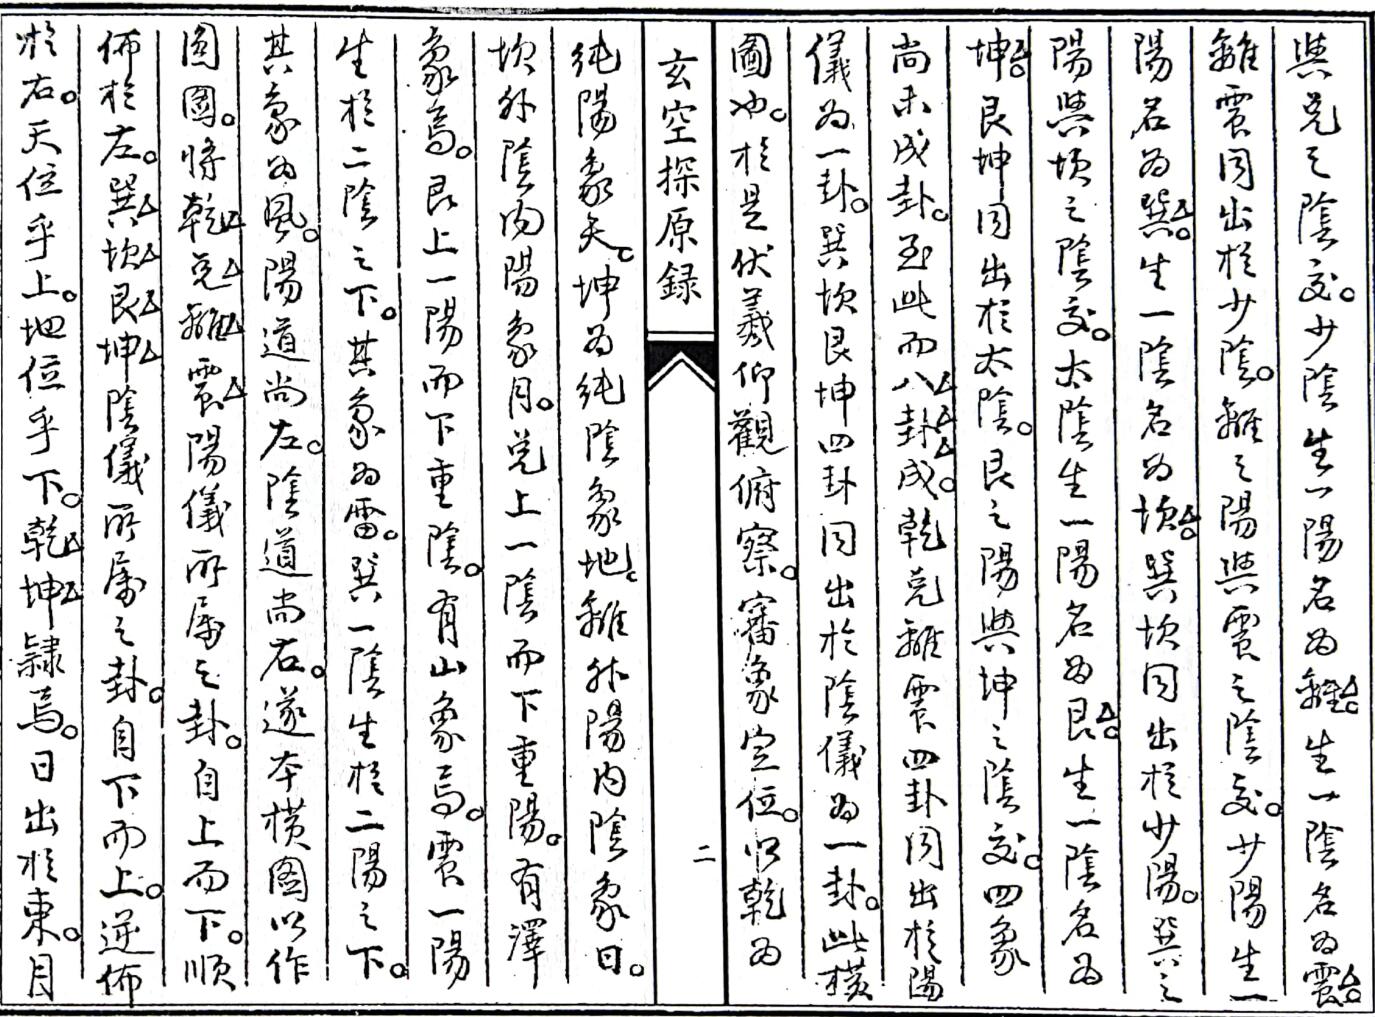 與兌之陰交。少陰生一陽名為離。生一陰名為震。
離震同出於少陰。離之陽與震之陰交。少陽生一
陽名為巽。生一陰名為坎。巽坎同出於少陽。巽之
陽與坎之陰交。太陰生一陽名為艮。生一陰名為
坤。艮坤同出於太陰。艮之陽與坤之陰交。四象
尚未成卦。至此而八卦成。乾兌離震四卦同出於陽
儀為一卦。巽坎艮坤四卦同出於陰儀為一卦。此橫
圖也。於是伏羲仰觀俯察。審象定位。以乾為
玄空探原錄
二
純陽象天。坤為純陰象地。離外陽內陰象日。
坎外陰內陽象月。兌上一陰而下重陽。有澤
象焉。艮上一陽而下重陰。有山象焉。震一陽
生於二陰之下。其象為雷。巽一陰生於二陽之下。
其象為風。陽道尚左。陰道尚右。遂本橫圖以作
圓圖。將乾兌離震陽儀所屬之卦。自上而下。順
佈於左。巽坎艮坤陰儀所屬之卦。自下而上。逆佈
於右。天位乎上。地位乎下。乾坤隸焉。日出於東。月